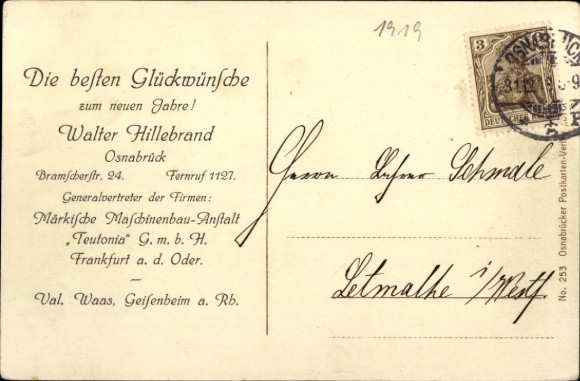 1919
Die beſten Glückwünſche
zum neuen Jahre!
Walter Hillebrand
Osnabrück
Bramſcherſtr. 24. Fernruf 1127.
Generalvertreter der Firmen:
Märkiſche Maſchinenbau-Anſtalt
„Teutonia" G. m. b. H.
Frankfurt a. d. Oder.
—
Val. Waas, Geiſenheim a. Rh.
3
DEUTSCHES
OSNABRÜCK
Herrn Lehrer Schmale
Letmathe i/Westf.
No. 253 Osnabrücker Postkarten-Ver